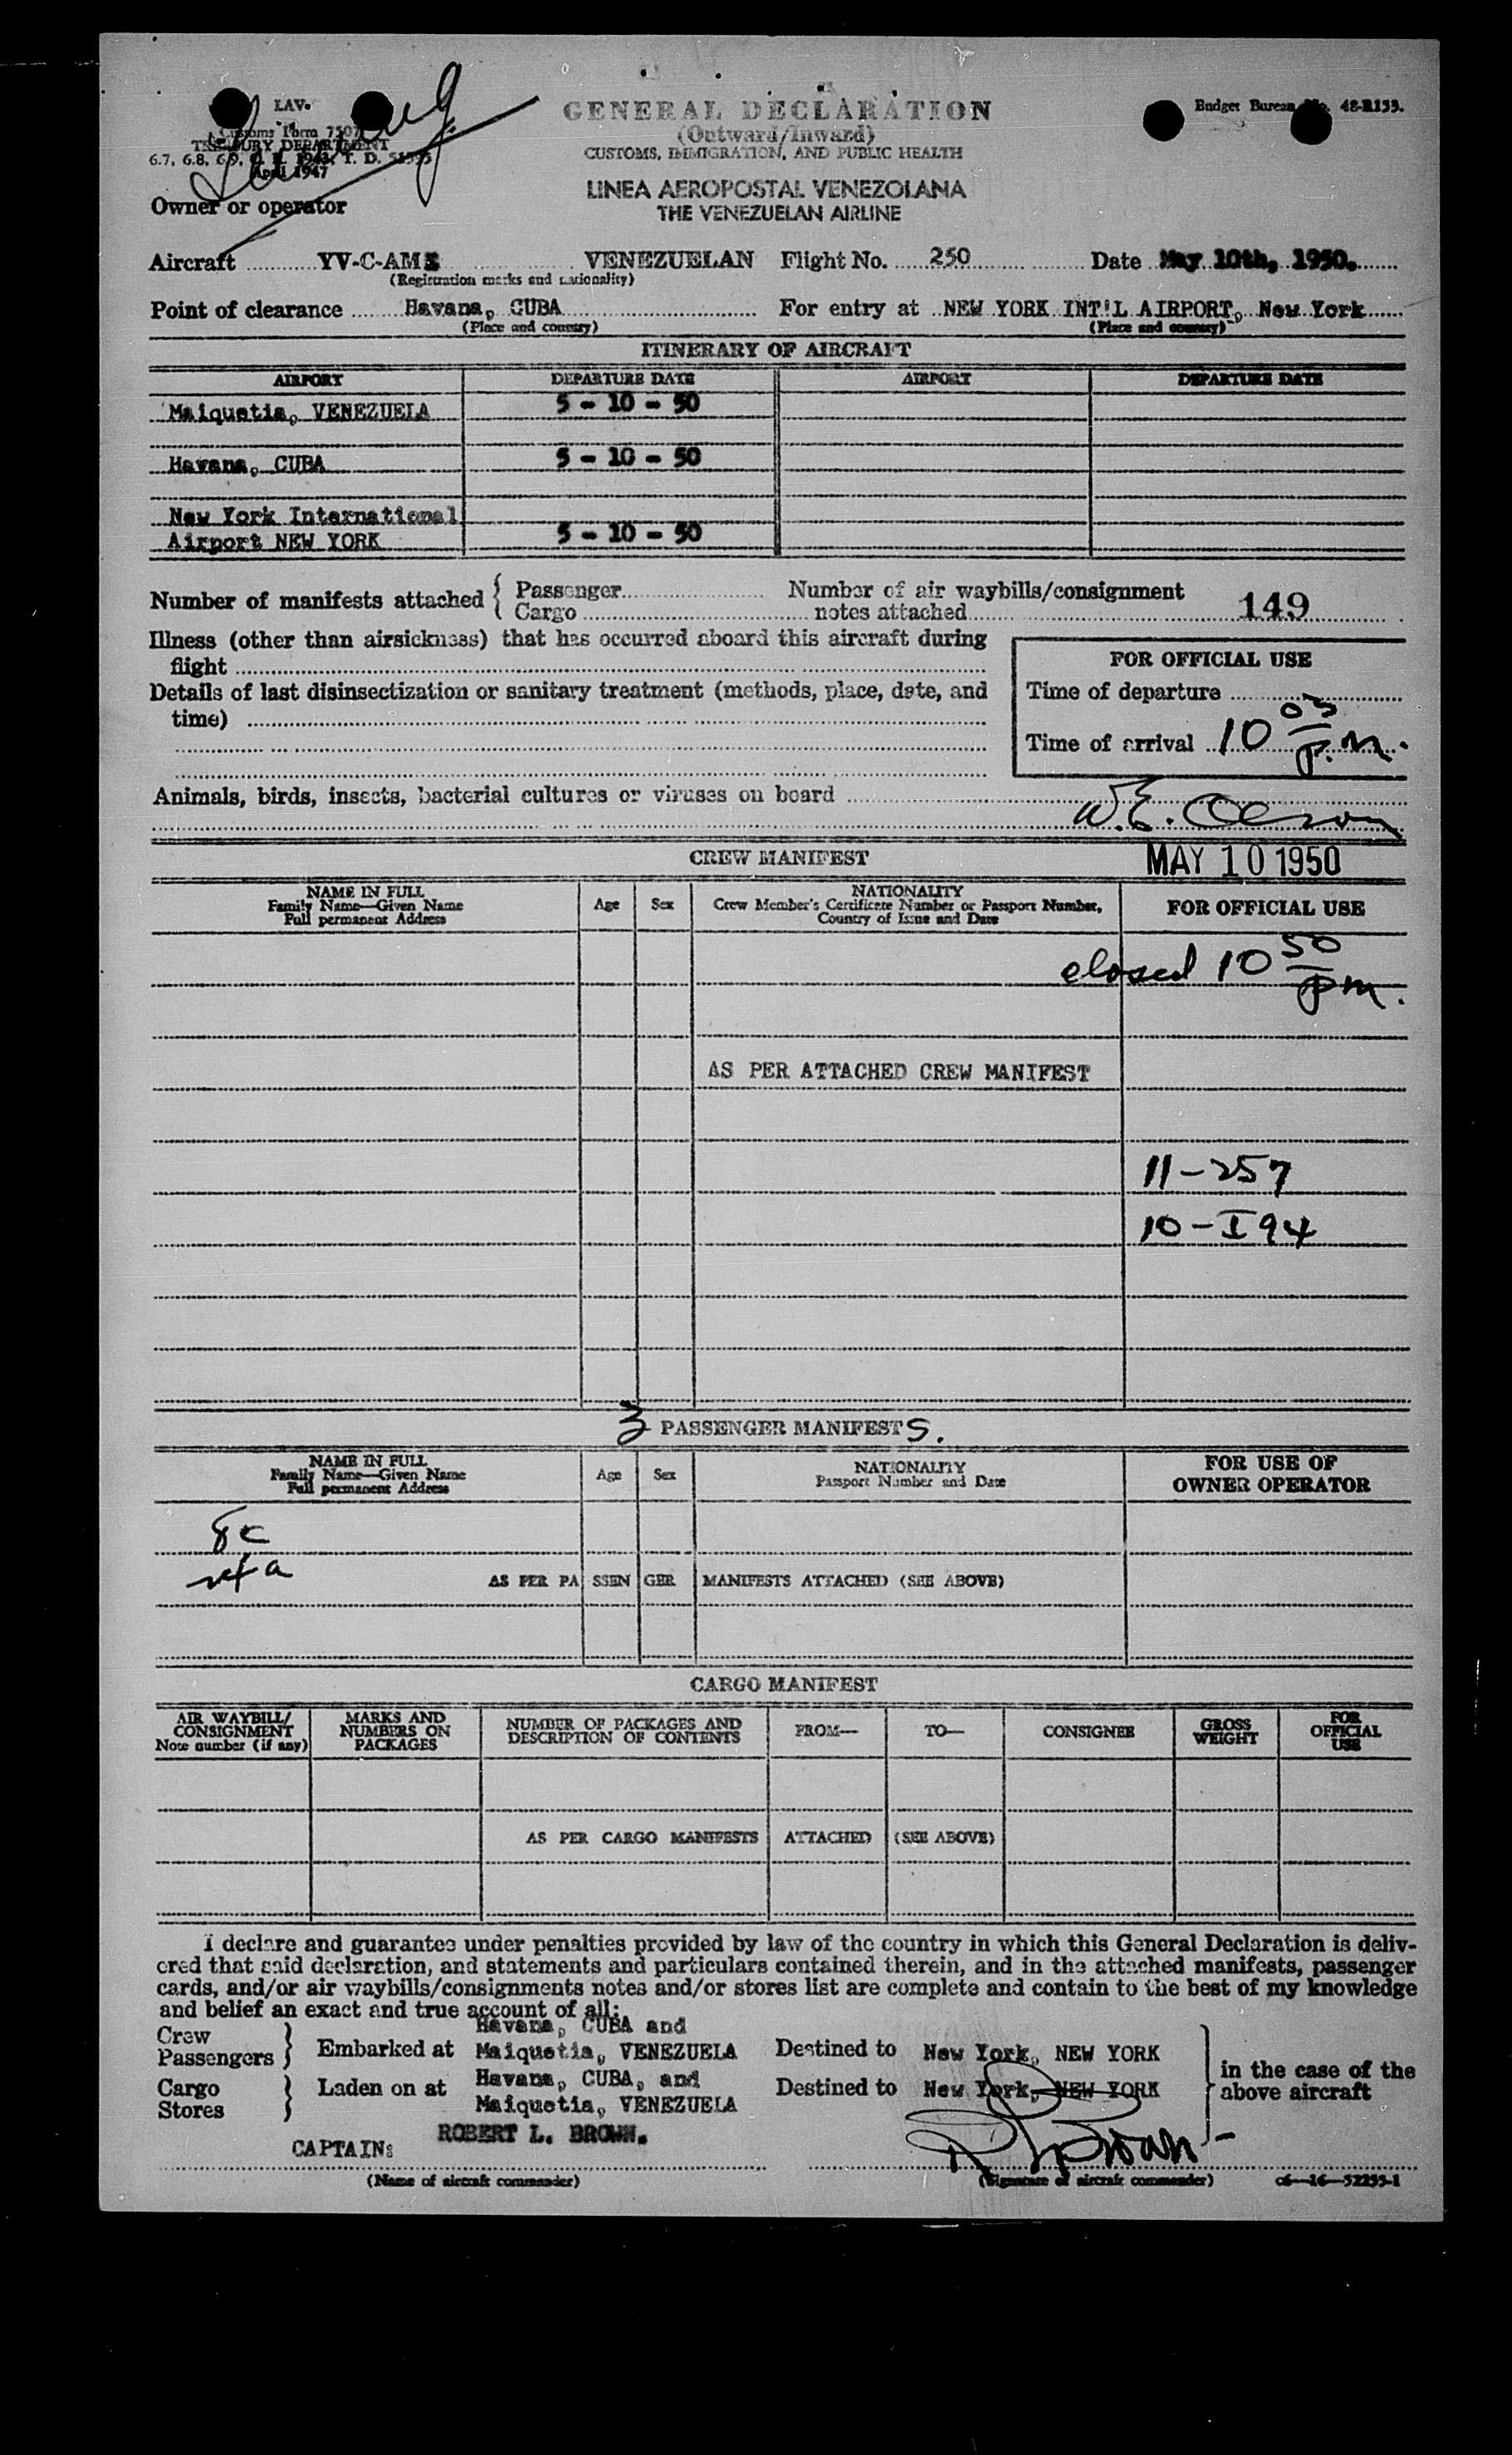 LAV.
GENERAL DECLARATION
Budget Bureau No. 48-R155.
Customs Form 7507
(Outward/Inward)
TREASURY DEPARTMENT
CUSTOMS, IMMIGRATION, AND PUBLIC HEALTH
6.7, 6.8, 6.9, 1943, T. D.
April 1947
LINEA AEROPOSTAL VENEZOLANA
Owner or operator
THE VENEZUELAN AIRLINE
Aircraft YV-C-AM VENEZUELAN Flight No. 250 Date May 10th, 1950.
(Registration marks and nationality)
Point of clearance Havana, CUBA For entry at NEW YORK INT'L AIRPORT, New York
(Place and country) (Place and country)
ITINERARY OF AIRCRAFT
AIRPORT DEPARTURE DATE AIRPORT DEPARTURE DATE
Maiquetia, VENEZUELA 5 - 10 - 50
Havana, CUBA 5 - 10 - 50
New York International
Airport NEW YORK 5 - 10 - 50
Number of manifests attached { Passenger Number of air waybills/consignment
Cargo notes attached 149
Illness (other than airsickness) that has occurred aboard this aircraft during
flight
FOR OFFICIAL USE
Details of last disinsectization or sanitary treatment (methods, place, date, and
time)
Time of departure
Time of arrival 10 05 p.m.
Animals, birds, insects, bacterial cultures or viruses on board
W.E. Olson
CREW MANIFEST MAY 10 1950
NAME IN FULL
Family Name—Given Name
Full permanent Address
Age Sex
NATIONALITY
Crew Member's Certificate Number or Passport Number,
Country of Issue and Date
FOR OFFICIAL USE
closed 10 50 pm.
AS PER ATTACHED CREW MANIFEST
11-257
10-I94
3 PASSENGER MANIFESTS.
NAME IN FULL
Family Name—Given Name
Full permanent Address
Age Sex
NATIONALITY
Passport Number and Date
FOR USE OF
OWNER OPERATOR
8c
AS PER PASSENGER MANIFESTS ATTACHED (SEE ABOVE)
CARGO MANIFEST
AIR WAYBILL/
CONSIGNMENT
Note number (if any)
MARKS AND
NUMBERS ON
PACKAGES
NUMBER OF PACKAGES AND
DESCRIPTION OF CONTENTS
FROM— TO— CONSIGNEE
GROSS
WEIGHT
FOR
OFFICIAL
USE
AS PER CARGO MANIFESTS ATTACHED (SEE ABOVE)
I declare and guarantee under penalties provided by law of the country in which this General Declaration is deliv-
ered that said declaration, and statements and particulars contained therein, and in the attached manifests, passenger
cards, and/or air waybills/consignments notes and/or stores list are complete and contain to the best of my knowledge
and belief an exact and true account of all:
Crew
Passengers } Embarked at Havana, CUBA and
Maiquetia, VENEZUELA Destined to New York, NEW YORK
Cargo
Stores } Laden on at Havana, CUBA, and
Maiquetia, VENEZUELA Destined to New York, NEW YORK
} in the case of the
above aircraft
CAPTAIN: ROBERT L. BROWN.
R L Brown
(Name of aircraft commander) (Signature of aircraft commander) c6—16—52255-1